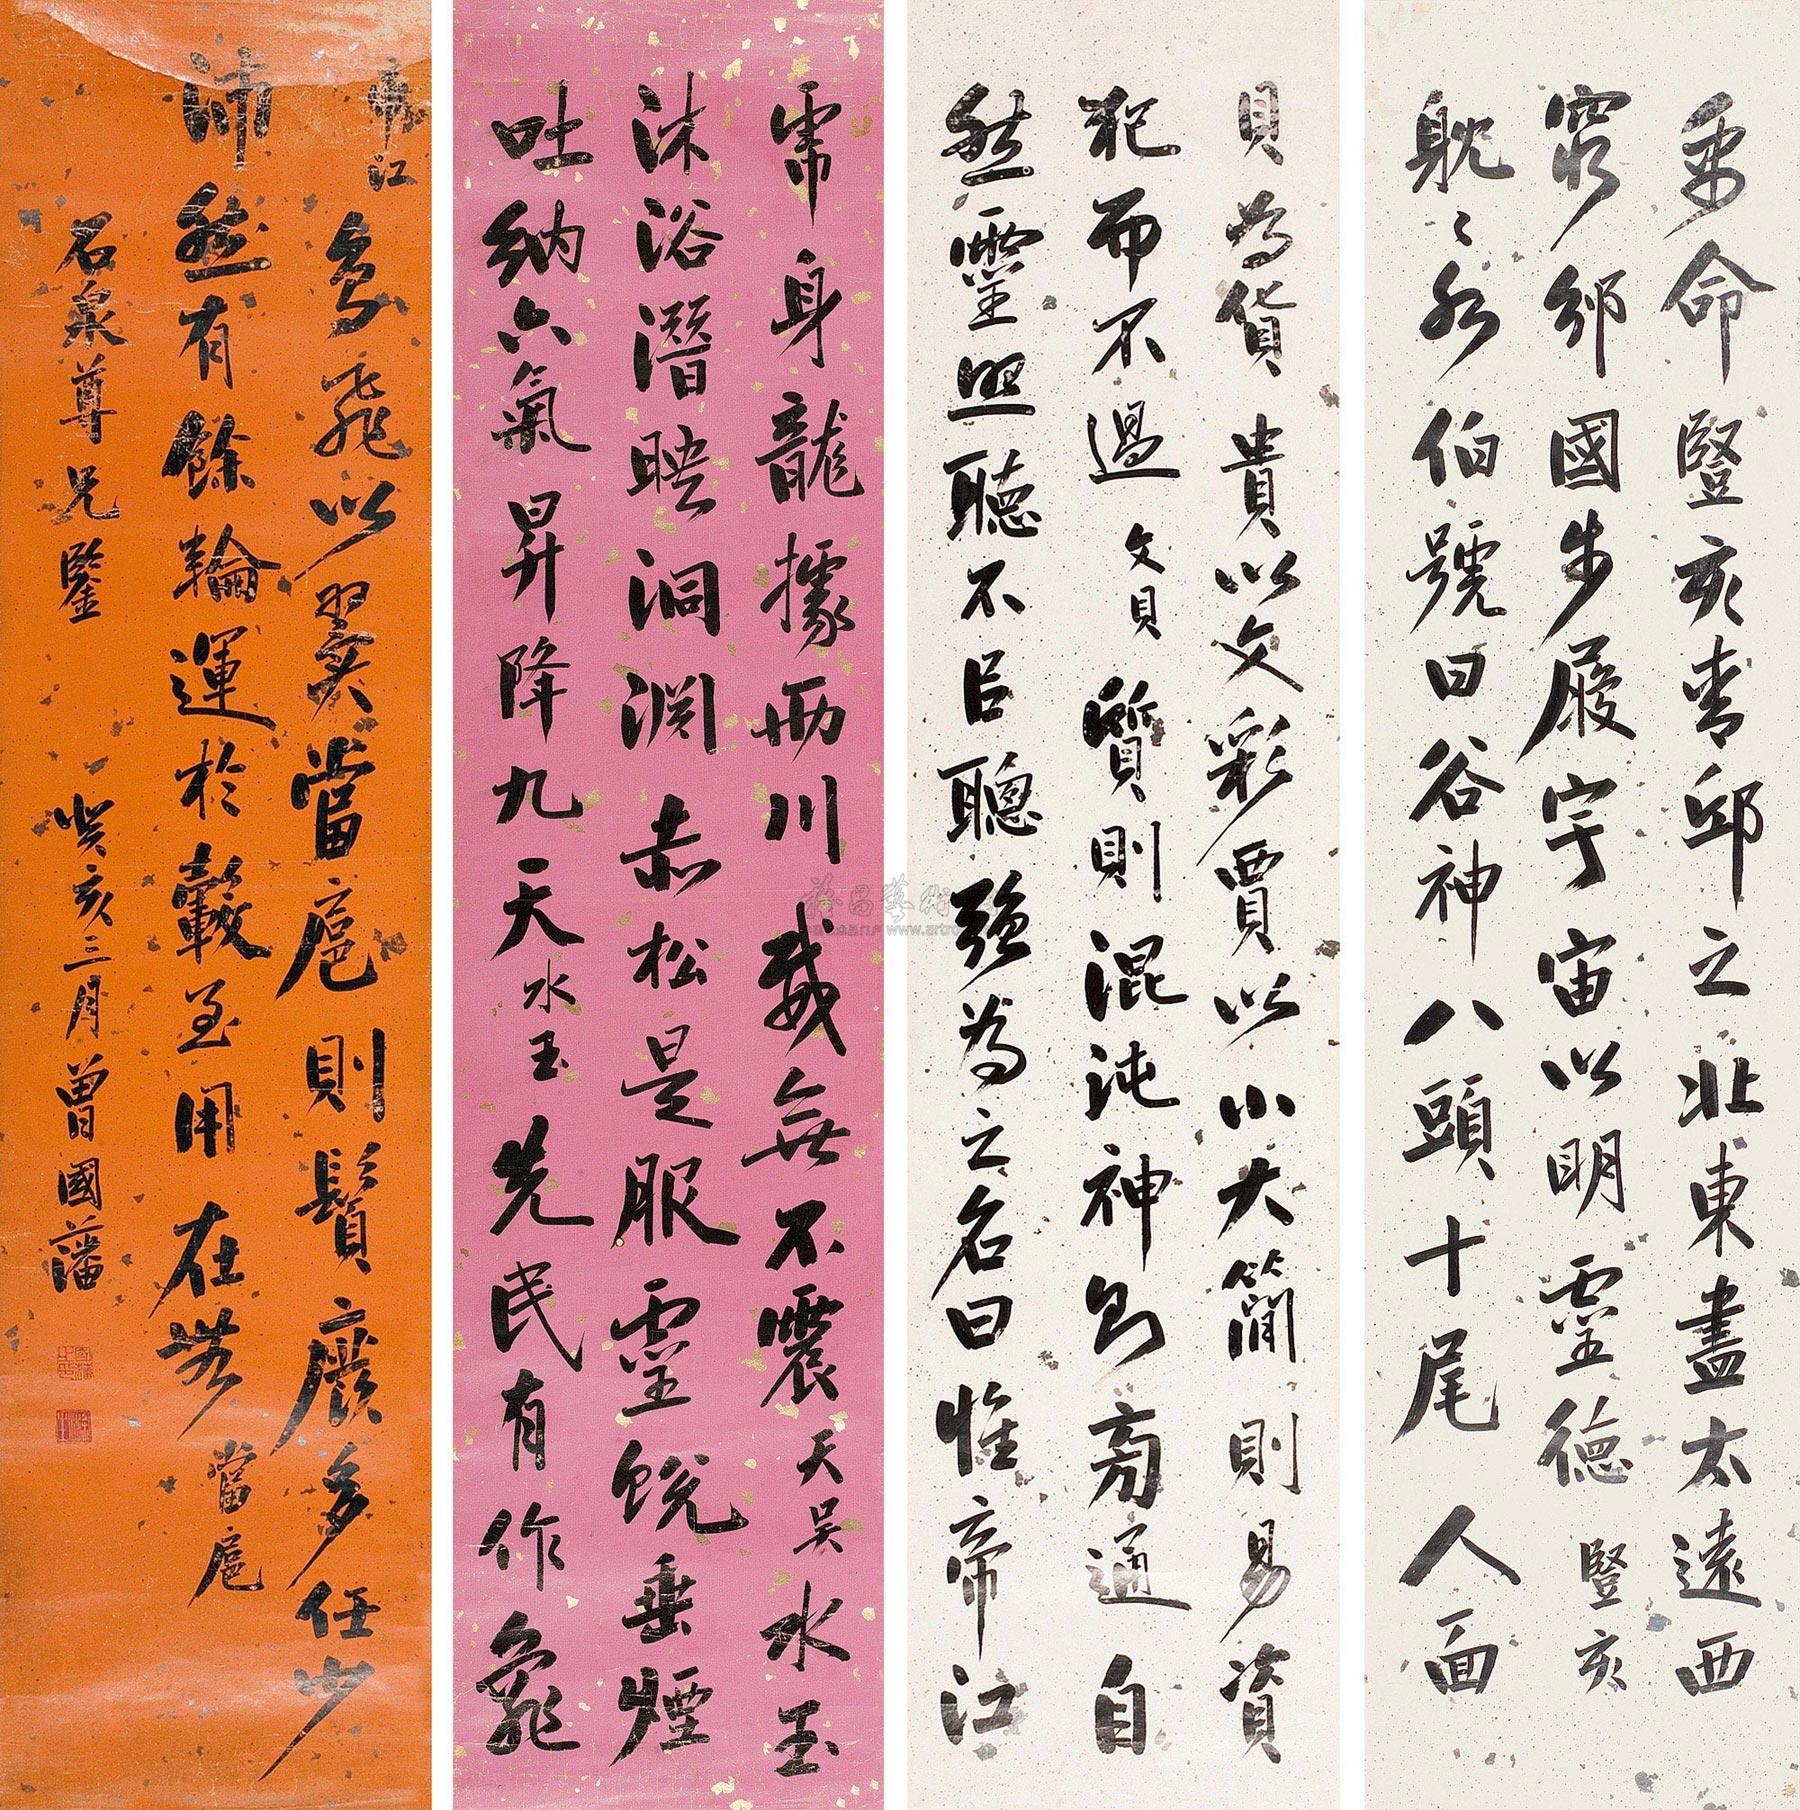 禹命豎亥青邱之北東盡太遠西
窮邠國步履宇宙以明靈德 豎亥
躭々水伯號曰谷神八頭十尾人面
虎身龍據兩川威無不震 天吳 水玉
沐浴潛映洞淵赤松是服靈蛻乘煙
吐納六氣昇降九天 水玉 先民有作龜
貝為貨貴以文彩賈以小大簡則易資
犯而不過 文貝 質則混沌神則旁通自
然靈照聽不㠯聰強為之名曰惟帝江
帝江 鳥飛以翼當扈則鬚廢多任少
沛然有餘輪運於轂至用在無 當扈
石泉尊兄鑒 癸亥三月曾國藩